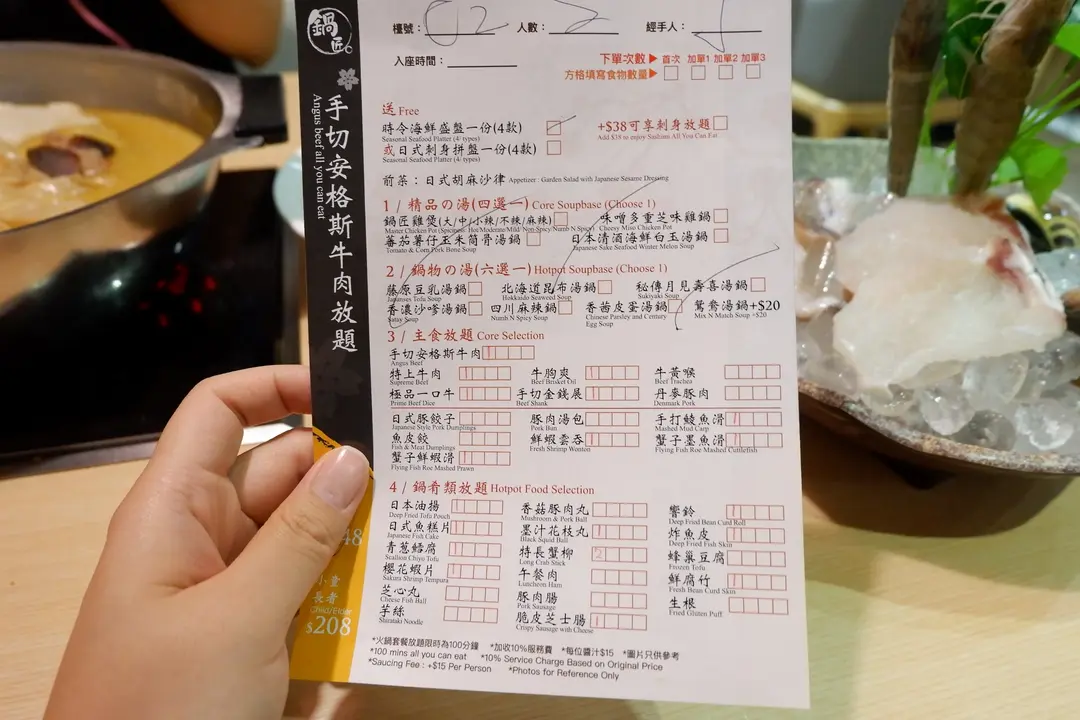 鍋匠
手切安格斯牛肉放題
Angus beef all you can eat
檯號： 人數： 經手人：
入座時間：
下單次數▶ 首次 加單1 加單2 加單3
方格填寫食物數量▶
送 Free
時令海鮮盛盤一份(4款) +$38可享刺身放題
Seasonal Seafood Platter (4 types) Add $38 to enjoy Sashimi All You Can Eat
或日式刺身拼盤一份(4款)
Seasonal Seafood Platter (4 types)
前菜：日式胡麻沙律 Appetizer : Garden Salad with Japanese Sesame Dressing
1 / 精品の湯(四選一) Core Soupbase (Choose 1)
鍋匠雞煲(大/中/小辣/不辣/麻辣) 味噌多重芝味雞鍋
Master Chicken Pot (Spiciness: Hot/Moderate/Mild/ Non Spicy/Numb N Spicy) Cheesy Miso Chicken Pot
蕃茄薯仔玉米筒骨湯鍋 日本清酒海鮮白玉湯鍋
Tomato & Corn Pork Bone Soup Japanese Sake Seafood Winter Melon Soup
2 / 鍋物の湯(六選一) Hotpot Soupbase (Choose 1)
藤原豆乳湯鍋 北海道昆布湯鍋 秘傳月見壽喜湯鍋
Japanses Tofu Soup Hokkaido Seaweed Soup Sukiyaki Soup
香濃沙嗲湯鍋 四川麻辣鍋 香茜皮蛋湯鍋 鴛鴦湯鍋+$20
Satay Soup Numb N Spicy Soup Chinese Parsley and Century Mix N Match Soup +$20
Egg Soup
3 / 主食放題 Core Selection
手切安格斯牛肉
Angus Beef
特上牛肉 牛胸爽 牛黃喉
Supreme Beef Beef Brisket Oil Beef Trachea
極品一口牛 手切金錢展 丹麥豚肉
Prime Beef Dice Beef Shank Denmark Pork
日式豚餃子 豚肉湯包 手打鯪魚滑
Japanese Style Pork Dumplings Pork Bun Mashed Mud Carp
魚皮餃 鮮蝦雲吞 蟹子墨魚滑
Fish & Meat Dumplings Fresh Shrimp Wonton Flying Fish Roe Mashed Cuttlefish
蟹子鮮蝦滑
Flying Fish Roe Mashed Prawn
4 / 鍋肴類放題 Hotpot Food Selection
日本油揚 香菇豚肉丸 響鈴
Deep Fried Tofu Pouch Mushroom & Pork Ball Deep Fried Bean Curd Roll
日式魚糕片 墨汁花枝丸 炸魚皮
Japanese Fish Cake Black Squid Ball Deep Fried Fish Skin
青蔥鱈腐 特長蟹柳 2 蜂巢豆腐
Scallion Chiyo Tofu Long Crab Stick Frozen Tofu
櫻花蝦片 午餐肉 鮮腐竹
Sakura Shrimp Tempura Luncheon Ham Fresh Bean Curd Skin
芝心丸 豚肉腸 生根
Cheese Fish Ball Pork Sausage Fried Gluten Puff
芋絲 脆皮芝士腸
Shirataki Noodle Crispy Sausage with Cheese
*火鍋套餐放題限時為100分鐘 *加收10%服務費 *每位醬汁$15 *圖片只供參考
*100 mins all you can eat *10% Service Charge Based on Original Price
*Saucing Fee : +$15 Per Person *Photos for Reference Only
48
小童
長者
Child/Elder
$208